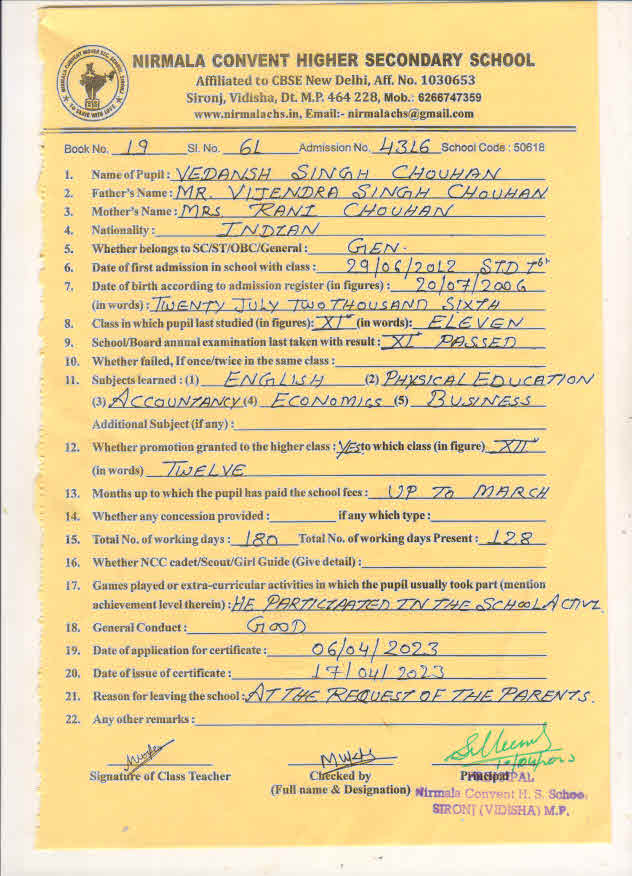 NIRMALA CONVENT HIGHER SECONDARY SCHOOL
Affiliated to CBSE New Delhi, Aff. No. 1030653
Sironj, Vidisha, Dt. M.P. 464 228, Mob.: 6266747359
www.nirmalachs.in, Email:- nirmalachs@gmail.com
Book No. 19 Sl. No. 61 Admission No. 4316 School Code : 50618
1. Name of Pupil : VEDANSH SINGH CHOUHAN
2. Father's Name : MR. VIJENDRA SINGH CHOUHAN
3. Mother's Name : MRS. RANI CHOUHAN
4. Nationality : INDIAN
5. Whether belongs to SC/ST/OBC/General : GEN.
6. Date of first admission in school with class : 29/06/2012 STD
7. Date of birth according to admission register (in figures) : 20/07/2006
(in words) : TWENTY JULY TWO THOUSAND SIXTH
8. Class in which pupil last studied (in figures): XIth (in words): ELEVEN
9. School/Board annual examination last taken with result : XIth PASSED
10. Whether failed, If once/twice in the same class :
11. Subjects learned : (1) ENGLISH (2) PHYSICAL EDUCATION
(3) ACCOUNTANCY (4) ECONOMICS (5) BUSINESS
Additional Subject (if any) :
12. Whether promotion granted to the higher class : YES to which class (in figure) XIIth
(in words) TWELVE
13. Months up to which the pupil has paid the school fees : UP TO MARCH
14. Whether any concession provided : if any which type :
15. Total No. of working days : 180 Total No. of working days Present : 128
16. Whether NCC cadet/Scout/Girl Guide (Give detail) :
17. Games played or extra-curricular activities in which the pupil usually took part (mention
achievement level therein) : HE PARTICIAATED IN THE SCHOOL ACTIVI.
18. General Conduct : GOOD
19. Date of application for certificate : 06/04/2023
20. Date of issue of certificate : 17/04/2023
21. Reason for leaving the school : AT THE REQUEST OF THE PARENTS.
22. Any other remarks :
Signature of Class Teacher Checked by Principal
(Full name & Designation) Nirmala Convent H. S. School
SIRONJ (VIDISHA) M.P.